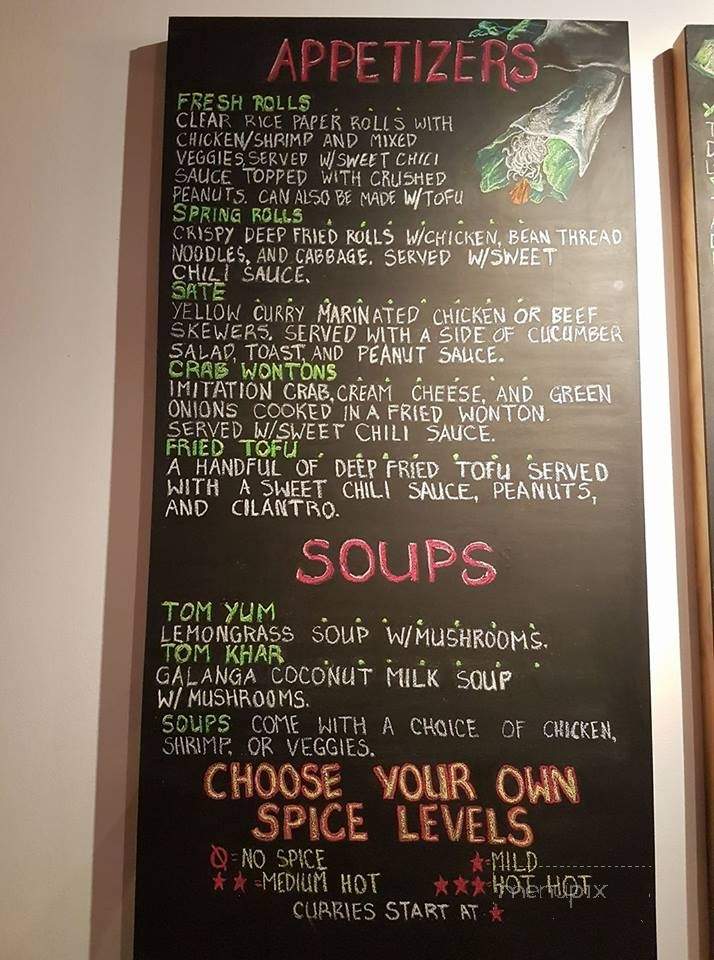 APPETIZERS
FRESH ROLLS
CLEAR RICE PAPER ROLLS WITH
CHICKEN/SHRIMP AND MIXED
VEGGIES SERVED W/SWEET CHILI
SAUCE TOPPED WITH CRUSHED
PEANUTS. CAN ALSO BE MADE W/TOFU
SPRING ROLLS
CRISPY DEEP FRIED ROLLS W/CHICKEN, BEAN THREAD
NOODLES, AND CABBAGE. SERVED W/SWEET
CHILI SAUCE.
SATE
YELLOW CURRY MARINATED CHICKEN OR BEEF
SKEWERS. SERVED WITH A SIDE OF CUCUMBER
SALAD, TOAST, AND PEANUT SAUCE.
CRAB WONTONS
IMITATION CRAB, CREAM CHEESE, AND GREEN
ONIONS COOKED IN A FRIED WONTON.
SERVED W/SWEET CHILI SAUCE.
FRIED TOFU
A HANDFUL OF DEEP FRIED TOFU SERVED
WITH A SWEET CHILI SAUCE, PEANUTS,
AND CILANTRO.
SOUPS
TOM YUM
LEMONGRASS SOUP W/MUSHROOMS.
TOM KHAR
GALANGA COCONUT MILK SOUP
W/ MUSHROOMS.
SOUPS COME WITH A CHOICE OF CHICKEN,
SHRIMP, OR VEGGIES.
CHOOSE YOUR OWN
SPICE LEVELS
=NO SPICE ★=MILD
★★=MEDIUM HOT ★★★=HOT HOT
menupix
CURRIES START AT ★